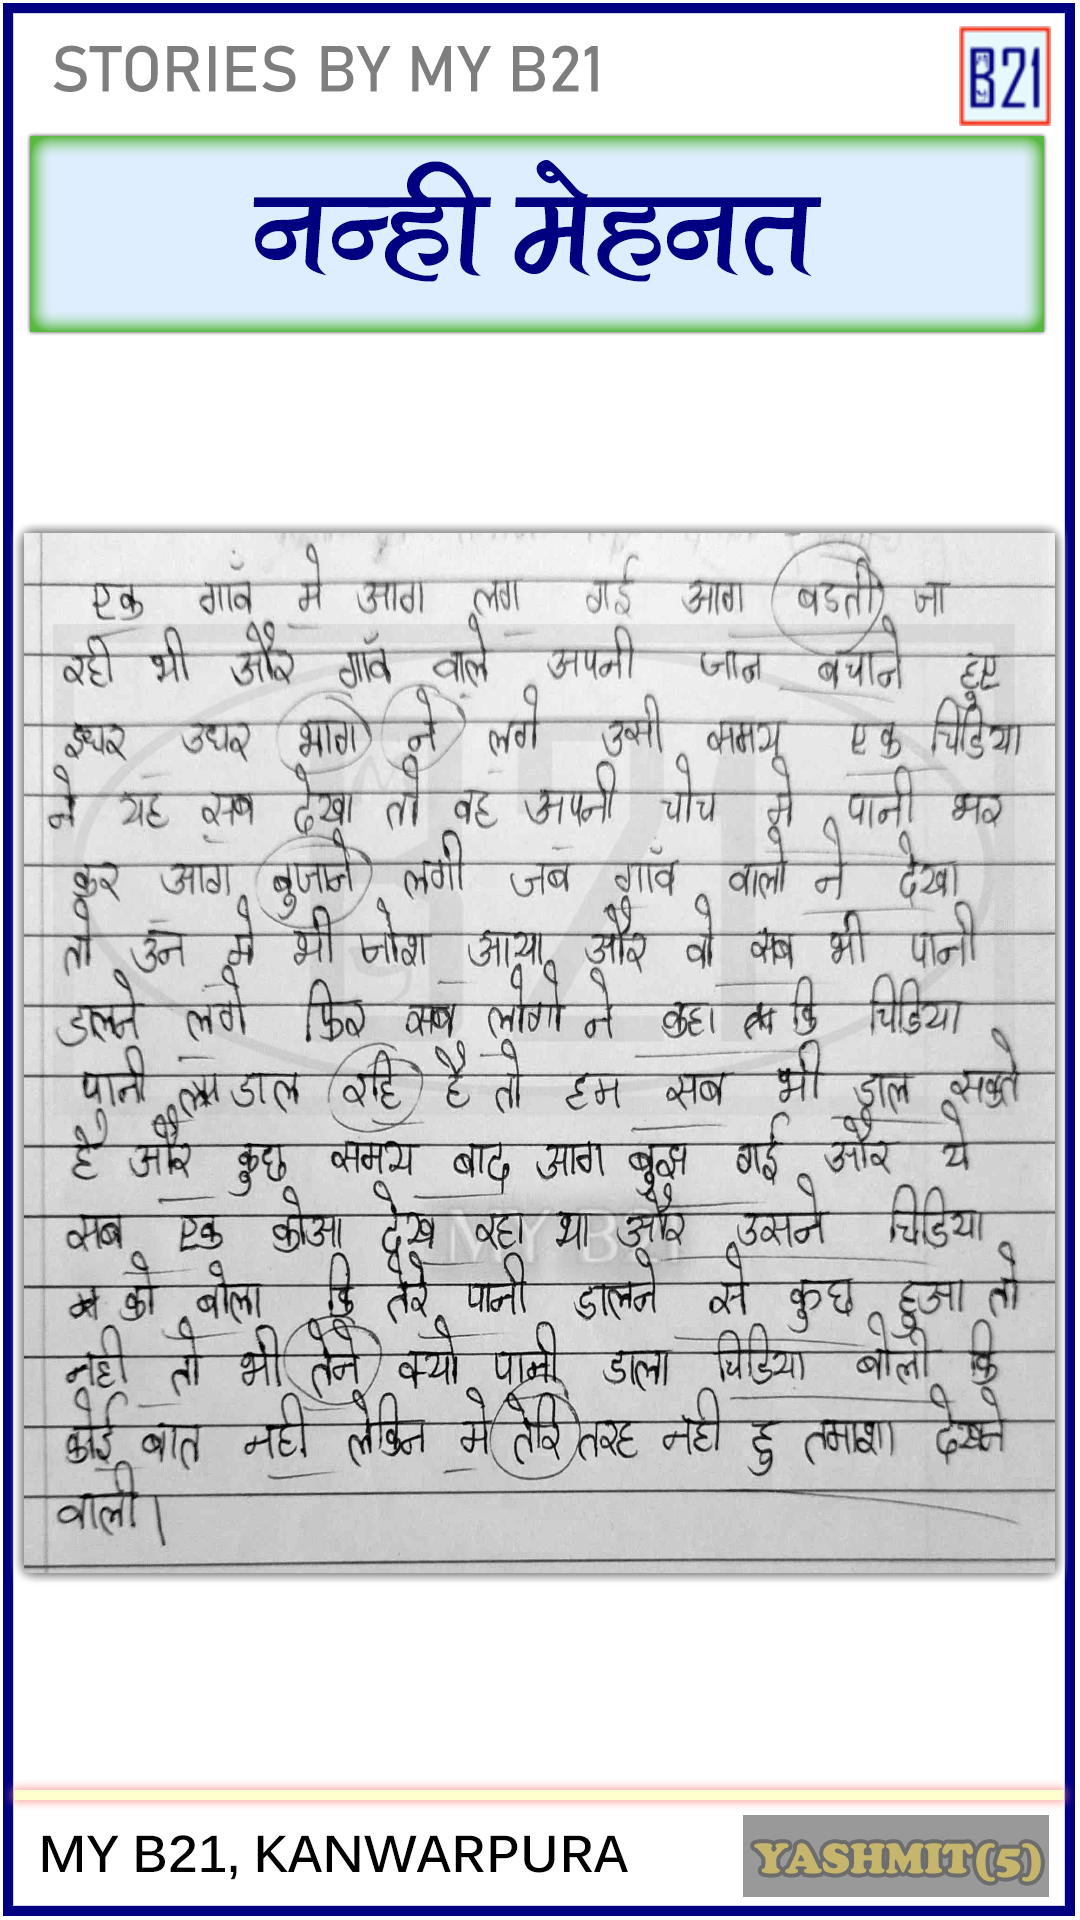 STORIES BY MY B21
B21
नन्ही मेहनत
एक गाँव मे आग लग गई आग बडती जा
रही भी और गाँव वाले अपनी जान बचाने हुए
इधर उधर भाग ने लगे उसी समय एक चिडिया
ने यह सब देखा तो वह अपनी चोच मे पानी भर
कर आग बुजाने लगी जब गाँव वालो ने देखा
तो उन मे भी जोश आया और वो सब भी पानी
डालने लगे फिर सब लोगो ने कहा कि चिडिया
पानी डाल रहि है तो हम सब भी डाल सकते
है और कुछ समय बाद आग बुझ गई और ये
सब एक कोआ देख रहा था और उसने चिडिया
को बोला कि तेरे पानी डालने से कुछ हुआ तो
नही तो भी तेने क्यो पानी डाला चिडिया बोली कि
कोई बात नही लेकिन मे तेरि तरह नही हु तमाशा देखने
वाली।
MY B21
MY B21, KANWARPURA
YASHMIT(5)